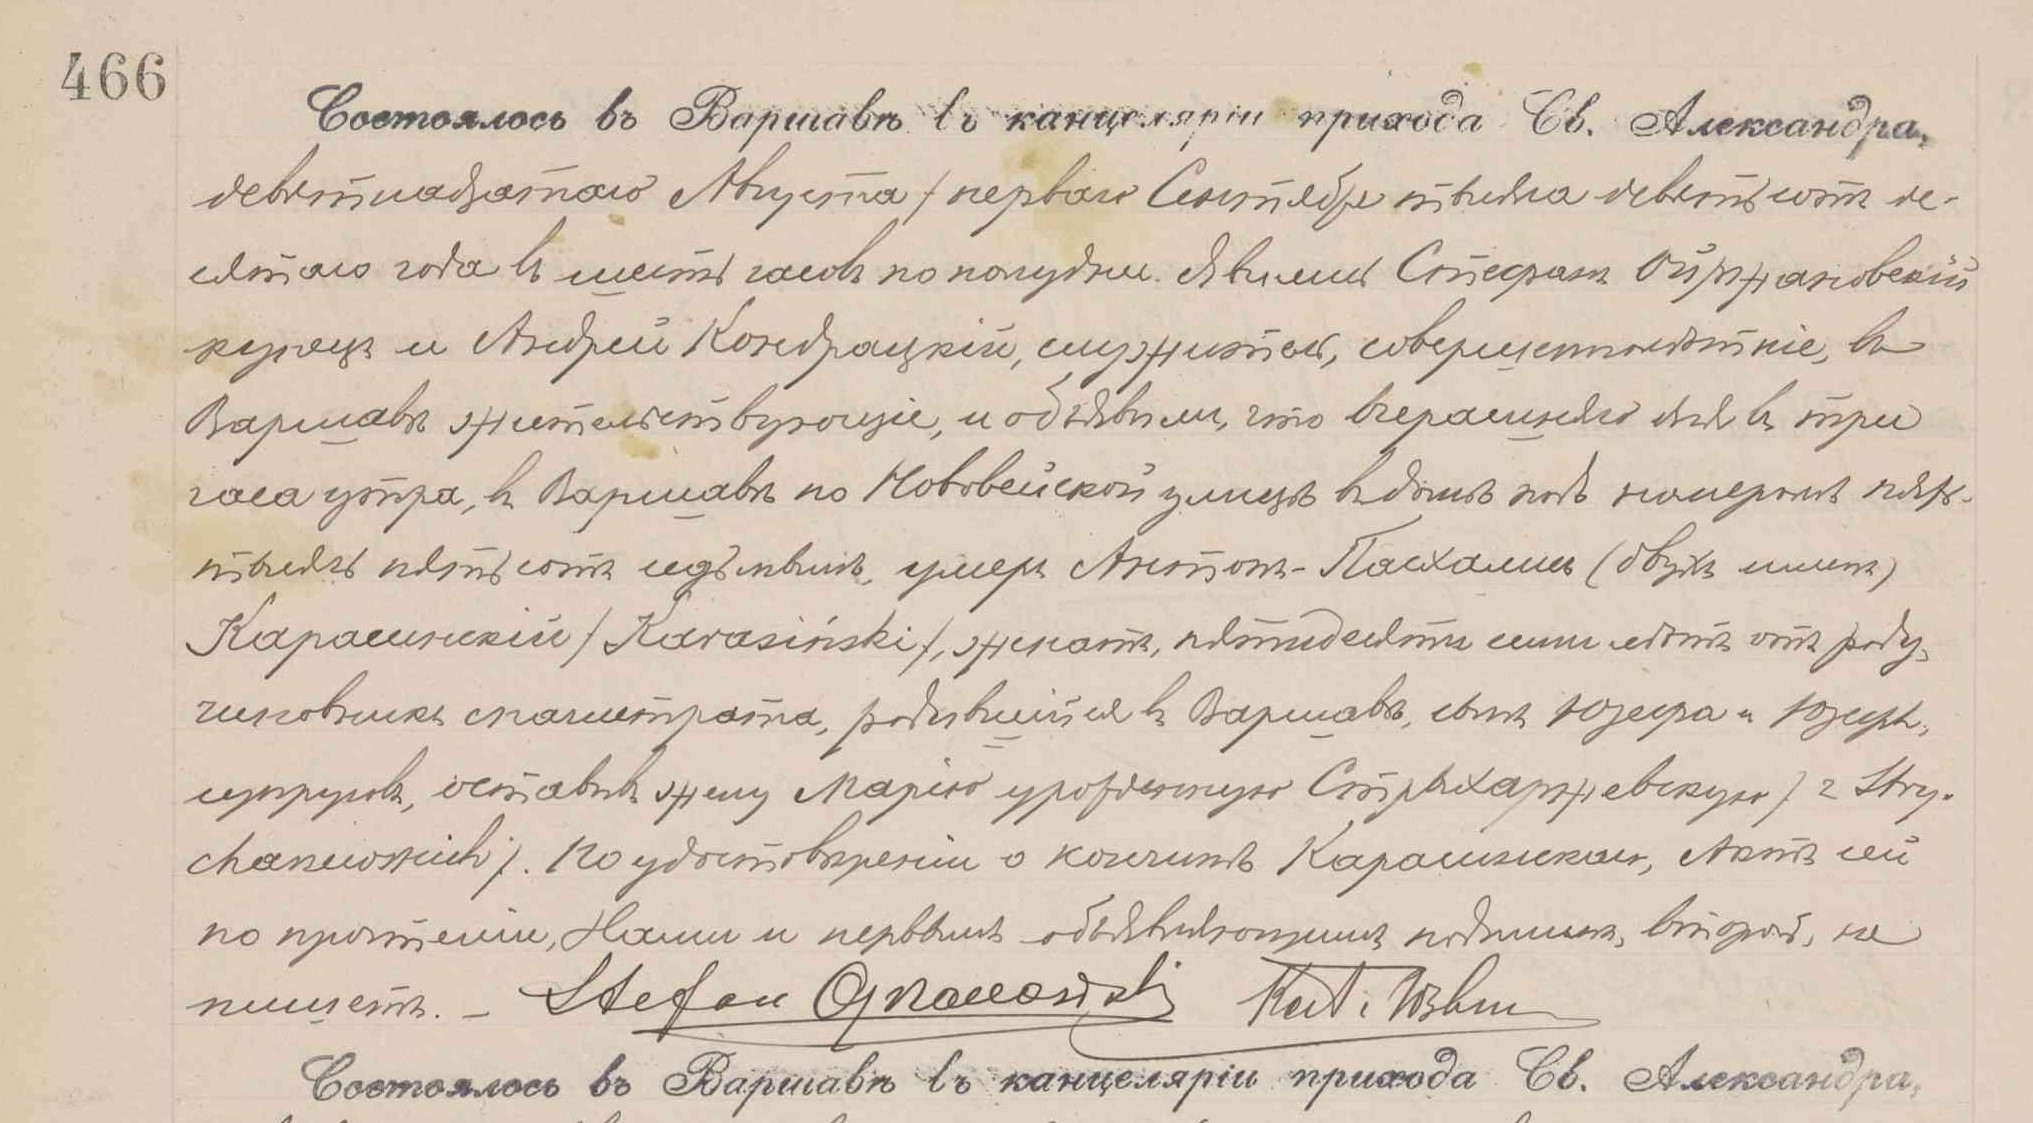 466
Состоялось въ Варшавѣ въ канцеляріи прихода Св. Александра,
девятнадцатаго Августа / перваго Сентября тысяча девятьсотъ де-
сятаго года въ шесть часовъ по полудни. Явились Стефанъ Ойржановскій
купецъ и Андрей Кондрацкій, служитель, совершеннолѣтніе, въ
Варшавѣ жительствующіе, и объявили, что вчерашняго дня въ три
часа утра, въ Варшавѣ по Нововейской улицѣ въ домѣ подъ номеромъ
тысячъ пятьсотъ седьмымъ, умеръ Антонъ-Пасхалисъ (двухъ именъ)
Карасинскій / Karasiński /, женатъ, пятидесяти семи лѣтъ отъ роду,
чиновникъ магистрата, родившійся въ Варшавѣ, сынъ Юзефа и Юзефы,
супруговъ, оставивъ жену Марію урожденную Стрыхаржевскую / z Stry-
charzewskich /. По удостовѣреніи о кончинѣ Карасинскаго, Актъ сей
по прочтеніи, Нами и первымъ объявляющимъ подписанъ, второй, не
пишетъ. – Stefan
Состоялось въ Варшавѣ въ канцеляріи прихода Св. Александра,